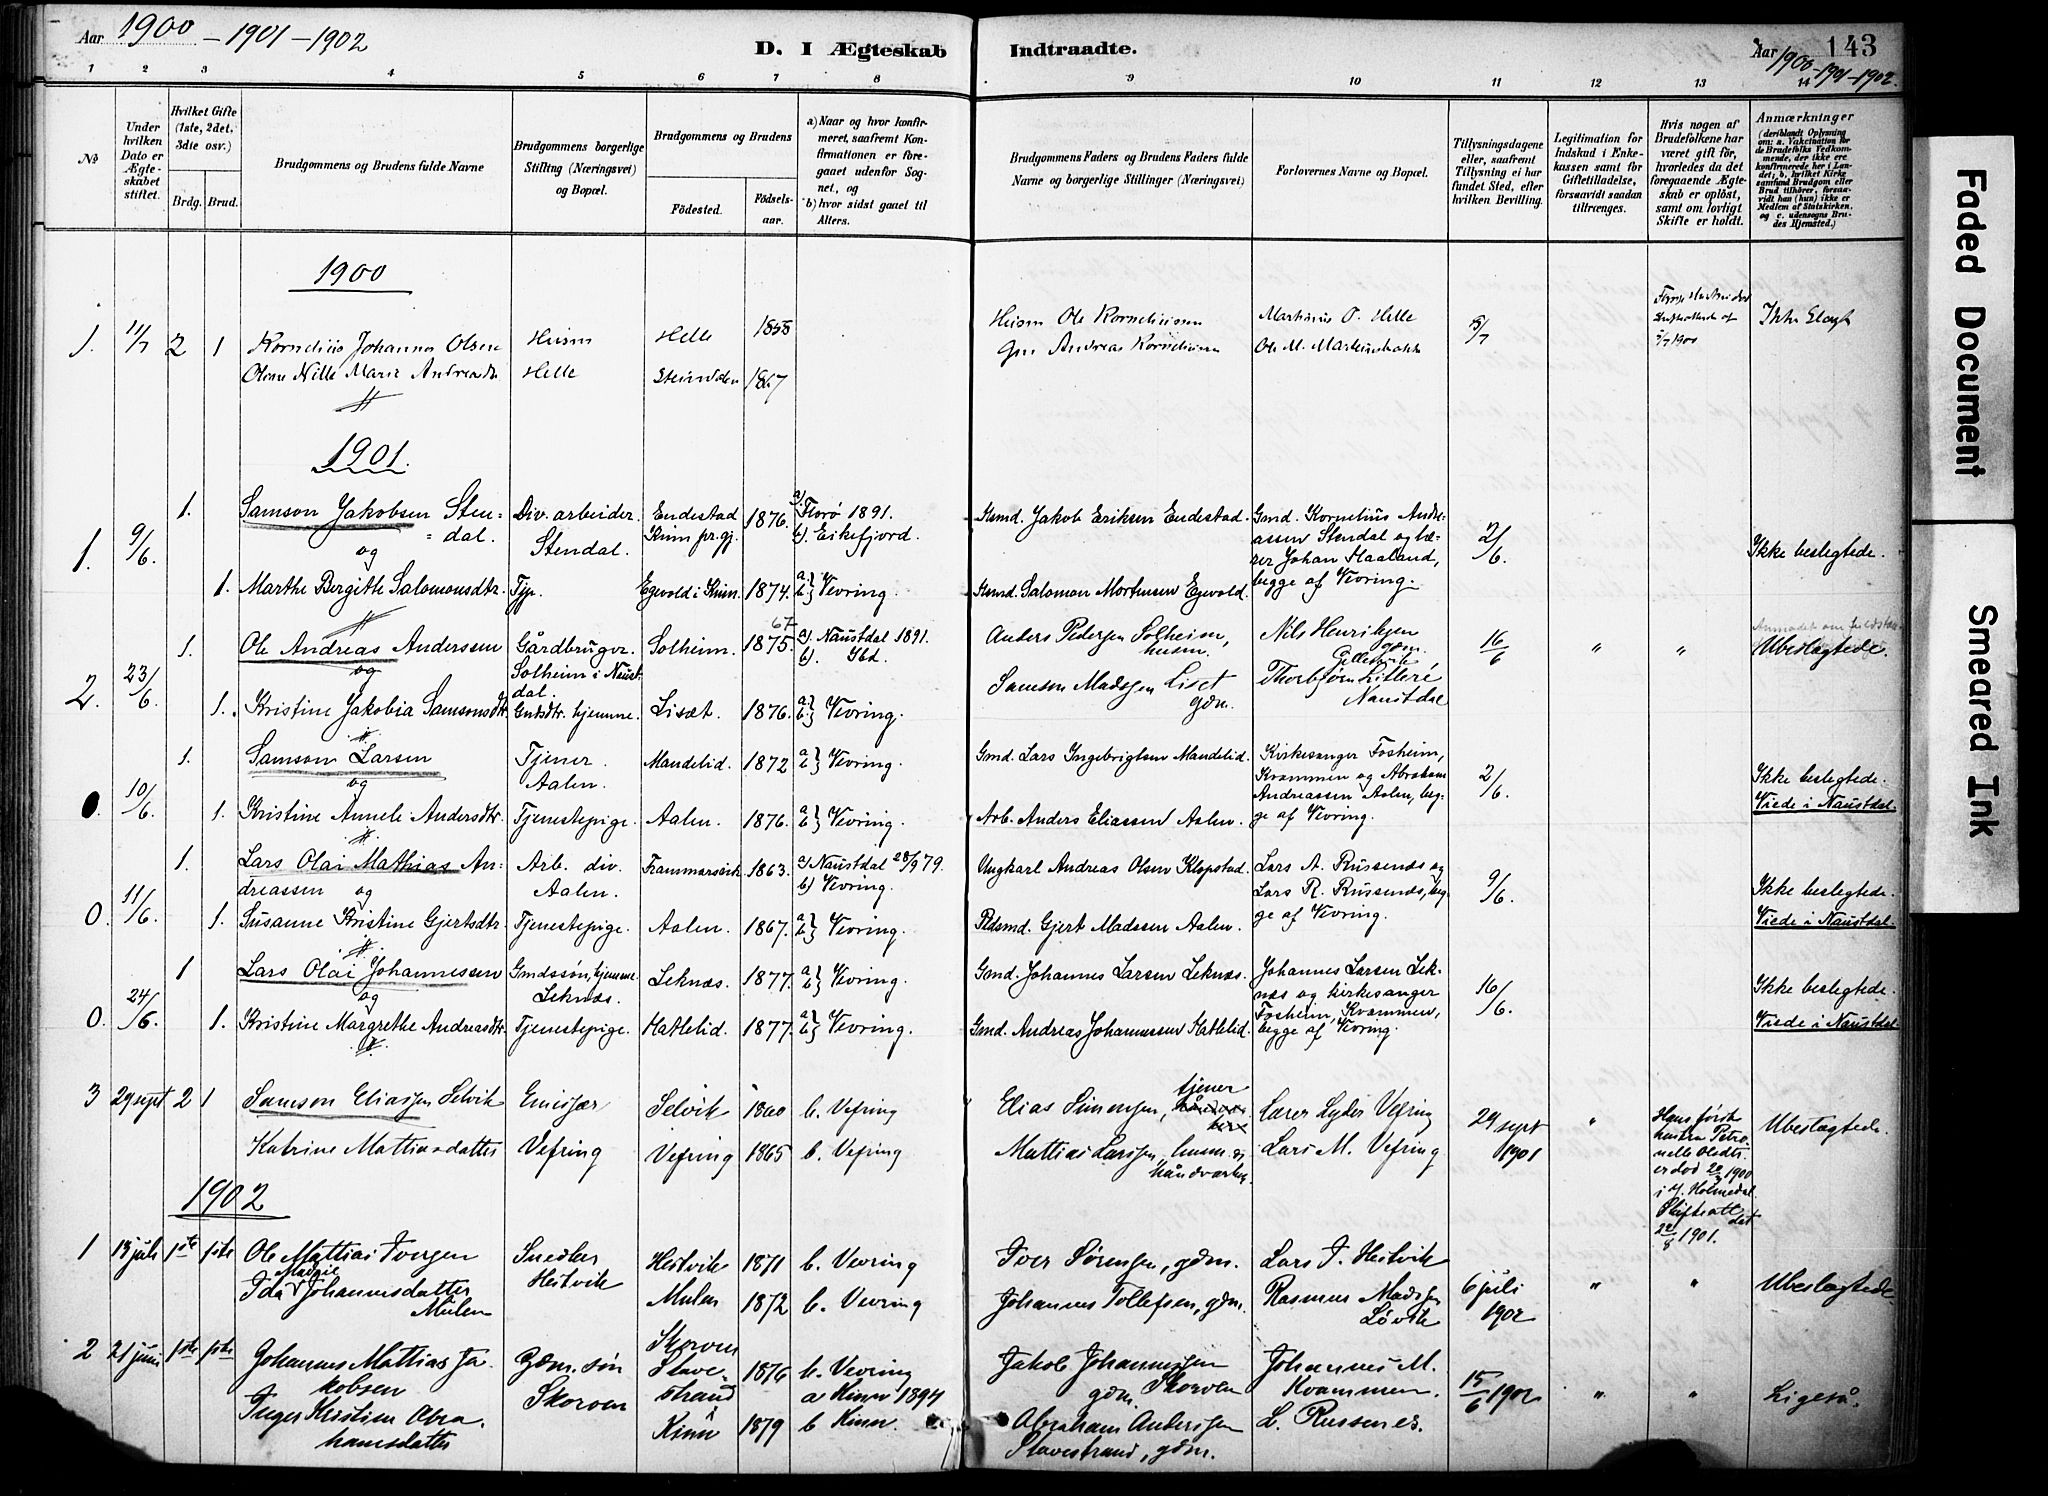 Aar 1900 - 1901 - 1902
D. I Ægteskab Indtraadte.
Aar 1900 - 1901 - 1902.
143
1 2 3 4 5 6 7 8 9 10 11 12 13 14
No
Under hvilken Dato er Ægteskabet stiftet.
Hvilket Gifte (1ste, 2det, 3die osv.)
Brdg. Brud.
Brudgommens og Brudens fulde Navne
Brudgommens borgerlige Stilling (Næringsvei) og Bopæl.
Brudgommens og Brudens
Fødested.
Fødselsaar.
a) Naar og hvor konfirmeret, saafremt Konfirmationen er foregaaet udenfor Sognet, og
b) hvor sidst gaaet til Alters.
Brudgommens Faders og Brudens Faders fulde Navne og borgerlige Stillinger (Næringsvei)
Forlovernes Navne og Bopæl.
Tillysningsdagene eller, saafremt Tillysning ei har fundet Sted, efter hvilken Bevilling.
Legitimation for Indskud i Enkekassen samt for Giftetilladelse, forsaavidt saadan tiltrænges.
Hvis nogen af Brudefolkene har været gift før, hvorledes da det foregaaende Ægteskab er opløst, samt om lovligt Skifte er holdt.
Anmærkninger (deriblandt Oplysning om: a. Vakcination for de Brudefolks Vedkommende, der ikke ere konfirmerede her i Landet; b. hvilket Kirkesamfund Brudgom eller Brud tilhører, forsaavidt han (hun) ikke er Medlem af Statskirken, og c. udensogns Brudes Hjemsted.)
1900
1. 11/7 2 1 Kornelius Johannes Olsen Husm Helle 1858 Husm Ole Korneliussen Martinus O. Helle 8/7 Ikke Slægt
Oline Nille Marie Andreasdtr Helle 1867 Gm Andreas Korneliussen Ole M.
7/7 1900
1901.
1. 9/6 1. Samson Jakobsen Stendal. Div. arbeider. Stendal. Endestad Kinn pr.gj. 1876. a) Florø 1891. b). Eikefjord. Husmd. Jakob Eriksen Endestad. Gmd. Kornelius Andreassen Stendal og lærer Johan Haaland, begge af Vevring. 2/6. Ikke beslegtede.
og
1. Marthe Bergithe Salomonsdtr. Tjp. Egevold i Kinn. 1874. a. b. } Vevring. Husmd. Salomon Mortensen Egevold.
2. 23/6. 1. Ole Andreas Anderssen Gårdbruger. Solheim i Naustdal. Solheim. 67 1875. a) Naustdal 1891. b). Ibd. Anders Pedersen Solheim, husm. Nils Henriksen gdm. 16/6 " " Ubeslægtede.
og
1. Kristine Jakobia Samsonsdtr. Gmdsdtr. hjemme. Liset. 1876. a. b. } Vevring. Samson Madssen Liset gdm. Thorbjørn Naustdal
0. 10/6. 1. Samson Larsen Tjener. Aalen. Mandelid. 1872 a. b. } Vevring. Gmd. Lars Ingebrigtsen Mandelid. Kirkesanger Fosheim, Kvammen og Abraham Andreassen Aalen, begge af Vevring. 2/6. Ikke beslegtede. Viede i Naustdal.
og
1. Kristine Annele Andersdtr. Tjenestepige. Aalen. 1876. a. b. } Vevring. Arb. Anders Eliassen Aalen.
0. 11/6. 1. Lars Olai Mathias Andreassen og Arb. div. Aalen. Frammarsvik. 1863. a) Naustdal 28/9 79. b) Vevring. Ungkarl Andreas Olsen Klopstad. Lars A. Russenæs og Lars R. Russenæs, begge af Vevring. 9/6. Ikke beslegtede. Viede i Naustdal.
1. Susanne Kristine Gjertsdtr. Tjenestepige. Aalen. 1867. a. b. } Vevring. Pldsmd. Gjert Madssen Aalen.
0. 24/6. 1 Lars Olai Johannessen Gmdssøn, hjemme. Leknæs. Leknæs. 1877. a. b. } Vevring. Gmd. Johannes Larsen Leknæs. Johannes Larsen Leknæs og kirkesanger Fosheim, Kvammen, begge af Vevring. 16/6. Ikke beslegtede. Viede i Naustdal.
og
1. Kristine Margrethe Andreasdtr. Tjenestepige. Hatlelid. 1877. a. b. } Vevring. Gmd. Andreas Johannessen Hatlelid.
3 29 sept 2 1 Samson Eliassen Selvik Emissær Selvik 1860 b. Vefring Elias Simonsen, tjener Lærer Lyder Vefring 29 sept 1901 " Hans første hustru Petronelle Olsdtr er død 1900 i Y. Holmedal. Skifte attdet 22/8 1901. Ubeslægtede.
Katrine Mattiasdatter Vefring Vefring 1865 b. Vefring Mattias Larssen, husm. & håndværker Lars M. Vefring
1902
1 13 juli 1ste 1ste Ole Mattias Iversen Snedker Heitvik Heitvik 1871 b. Vevring Iver Sørensen, gdm. Lars J. Heitvik 6 juli 1902 " " Ubeslægtede.
Ida Madgil Johannesdatter Mulen Mulen 1872 b. Vevring Johannes Tollefsen, gdm. Rasmus Madssen Løvik
2 21 juni 1ste 1ste Johannes Mattias Jakobsen Gdm. søn Skorven Skorven 1876 b. Vevring Jakob Johannessen gdm. Skorven Johannes M. Kvammen. 15/6 1902 " " Ligeså.
Inger Kristine Abrahamsdatter Stavestrand Kinn 1879 a Kinn 1894 b Kinn. Abraham Anderssen Stavestrand, gdm. L. Russenes.
Faded Document
Smeared Ink